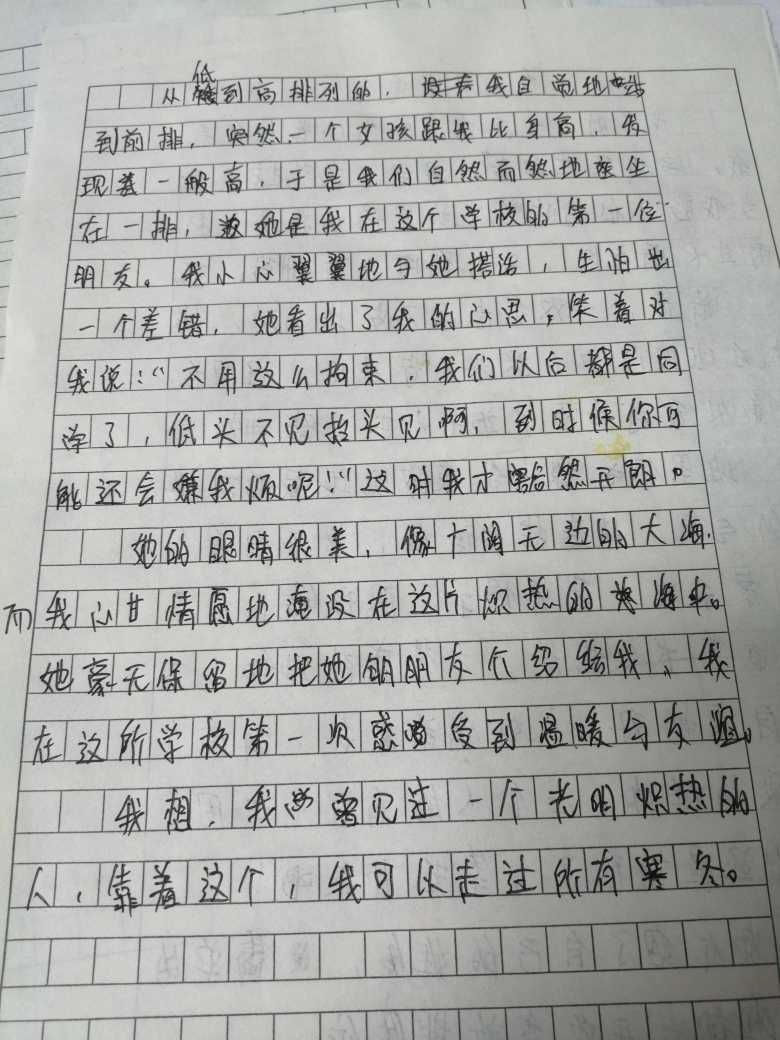 从低到高排列的，我自觉地站
到前排，突然，一个女孩跟我比身高，发
现差一般高，于是我们自然而然地坐
在一排，她是我在这个学校的第一位
朋友。我小心翼翼地与她搭话，生怕出
一个差错，她看出了我的心思，笑着对
我说：“不用这么拘束，我们以后都是同
学了，低头不见抬头见啊，到时候你可
能还会嫌我烦呢！”这时我才豁然开朗。
她的眼睛很美，像广阔无边的大海，
而我心甘情愿地淹没在这片炽热的海中。
她豪无保留地把她的朋友介绍给我，我
在这所学校第一次感受到温暖与友谊。
我想，我曾见过一个光明炽热的
人，靠着这个，我可以走过所有寒冬。